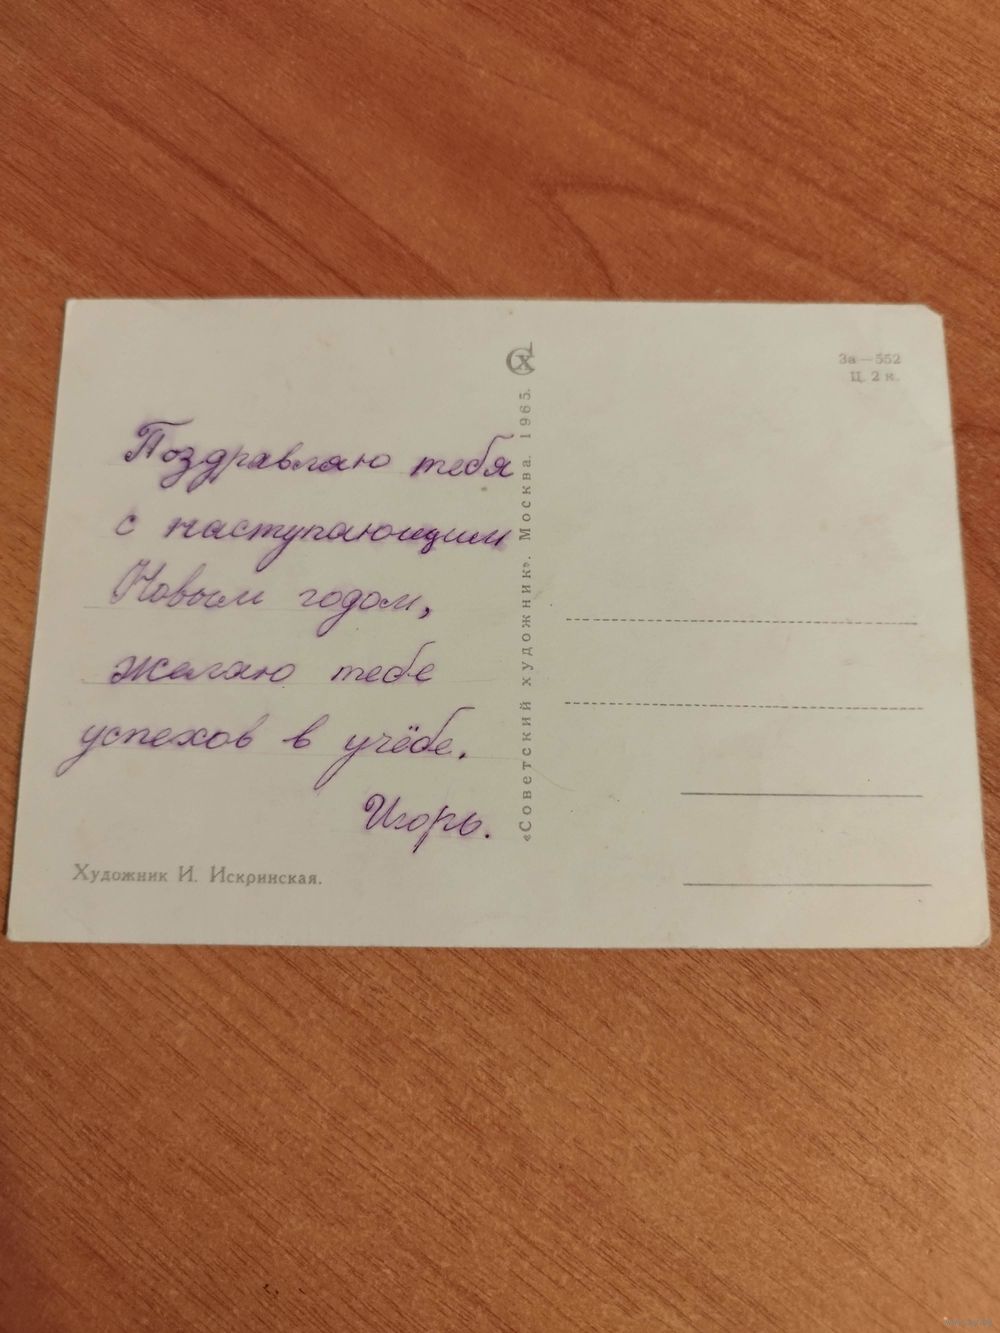 Поздравляю тебя
с наступающим
Новым годом,
желаю тебе
успехов в учёбе.
Игорь.
Художник И. Искринская.
«Советский художник». Москва. 1965.
СХ
За—552
Ц. 2 к.